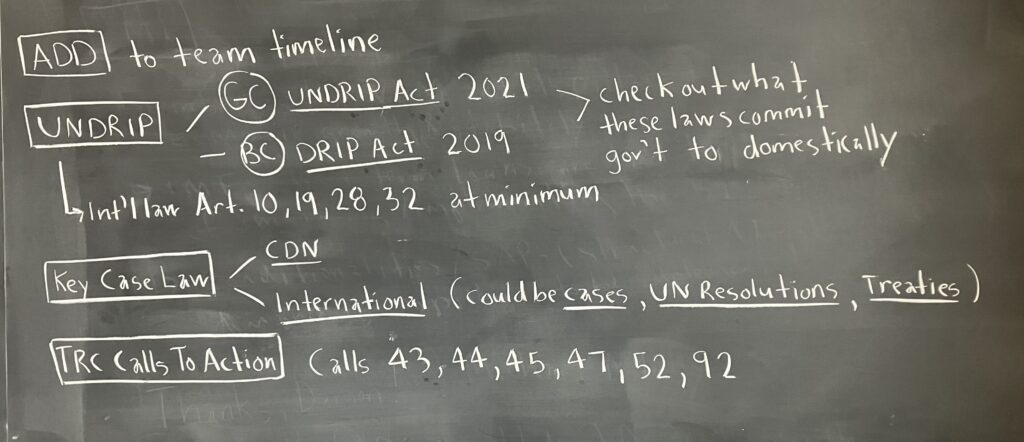 ADD to team timeline
UNDRIP
GC UNDRIP Act 2021
BC DRIP Act 2019
check out what
these laws commit
gov't to domestically
Int'l law Art. 10, 19, 28, 32 at minimum
Key Case Law
CDN
International (could be cases, UN Resolutions, Treaties)
TRC Calls To Action Calls 43, 44, 45, 47, 52, 92